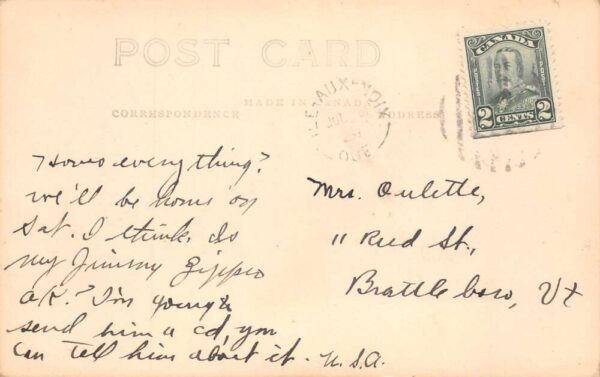 POST CARD
MADE IN CANADA
CORRESPONDENCE
ADDRESS
CANADA
2 CENTS 2
ILE-AUX-NOIX
QUE
Hows everything?
we'll be home on
Sat. I think. Is
my Jimmy
O.K.? I'm going to
send him a cd, you
can tell him about it.
Mrs. Oulette,
11 Reed St.,
Brattleboro, Vt
U.S.A.